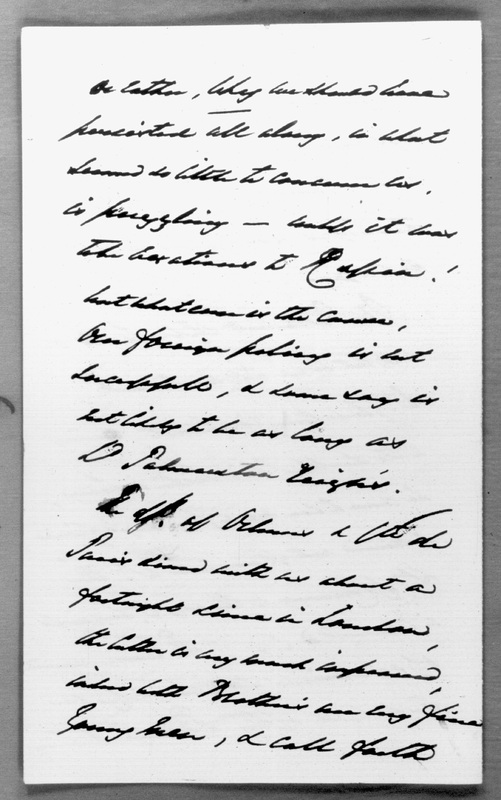 or rather, Why we should have
persisted all along, in what
seemed so little to concern us,
is puzzling — unless it was
to be vexatious to Russia!
but whatever is the cause,
Our foreign policy is not
successful, & some say is
not likely to be as long as
Ld Palmerston reigns.
The of Orleans & Cte de
Paris dined with us about a
fortnight since in London,
the latter is very much improved,
indeed both Brothers are very fine
Young Men, & call forth